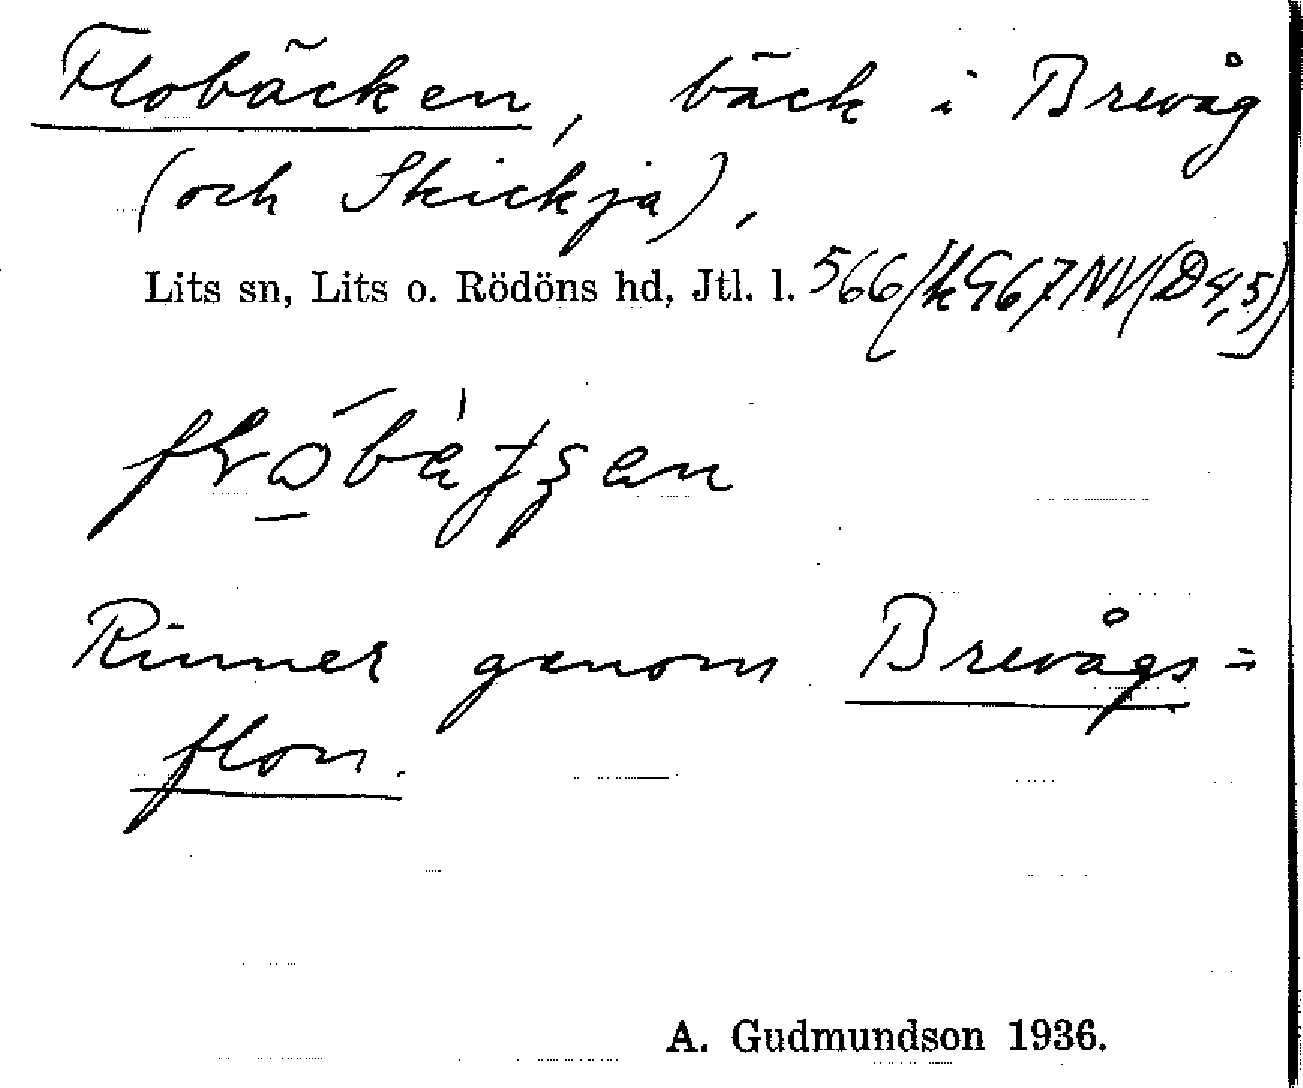 Flobäcken, bäck i Brevåg
(och Skickja),
Lits sn, Lits o. Rödöns hd, Jtl. l. 566/k 967 NV (D 4,5)
Rinner genom Brevågs=
flon.
A. Gudmundson 1936.